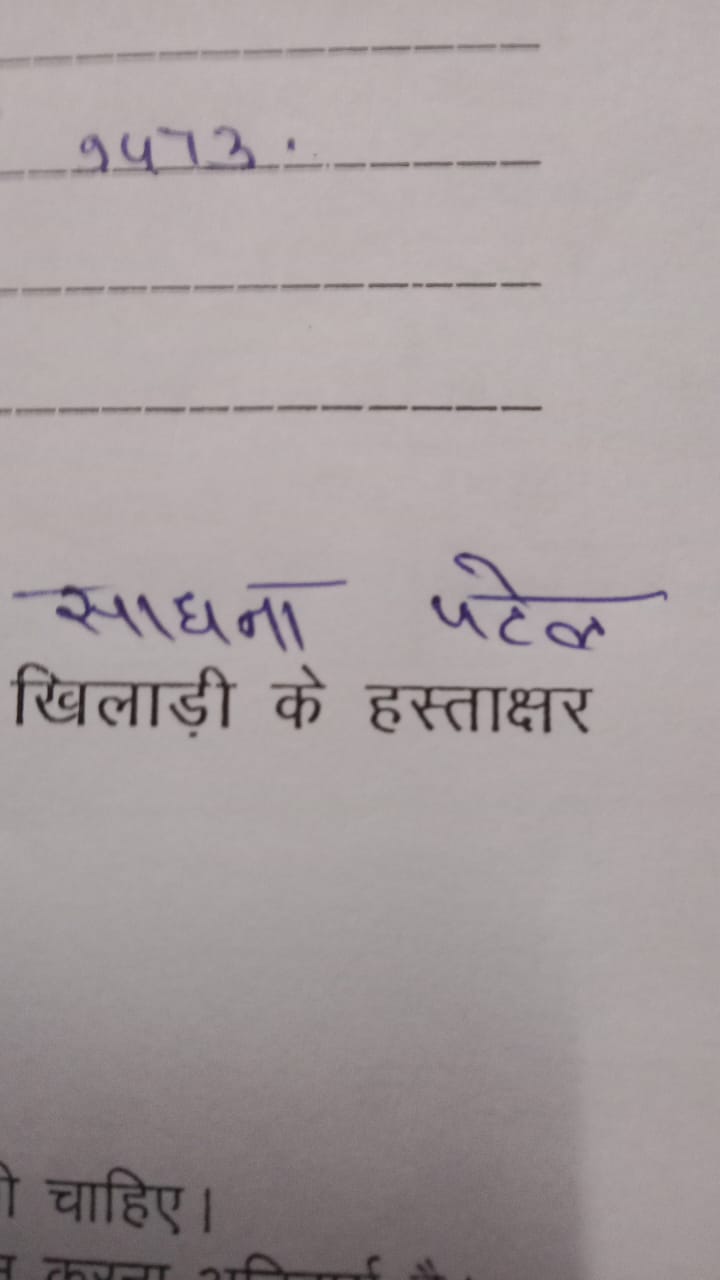 9573.
साधना पटेल
खिलाड़ी के हस्ताक्षर
चाहिए।
करना अनिवार्य है।